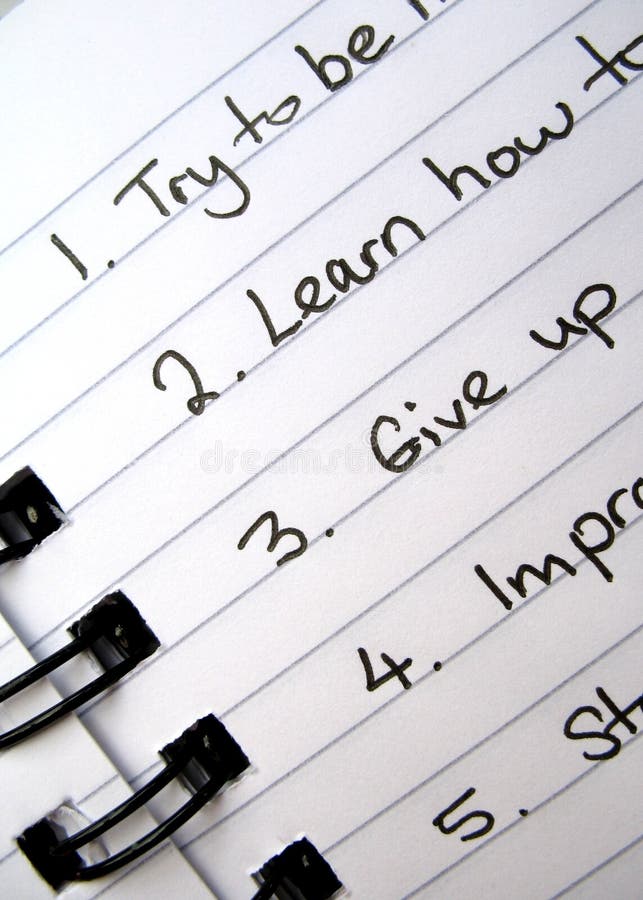 1. Try to be
2. Learn how to
3. Give up
4. Impro
5. St
dreamstime.com